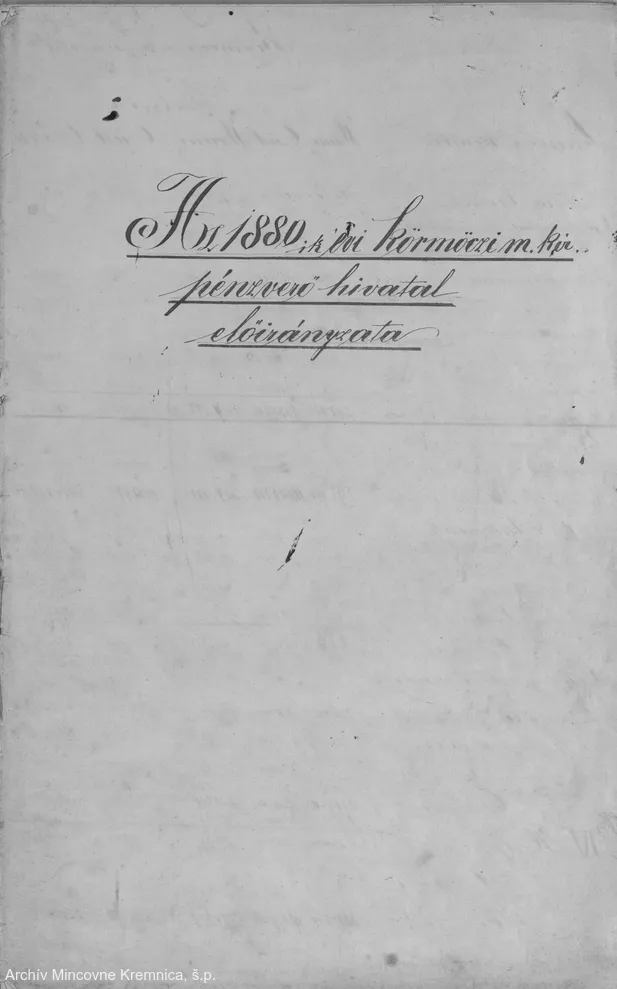 Az 1880.ik évi körmöczi m. kir.
pénzverő hivatal
előirányzata
Archív Mincovne Kremnica, š.p.